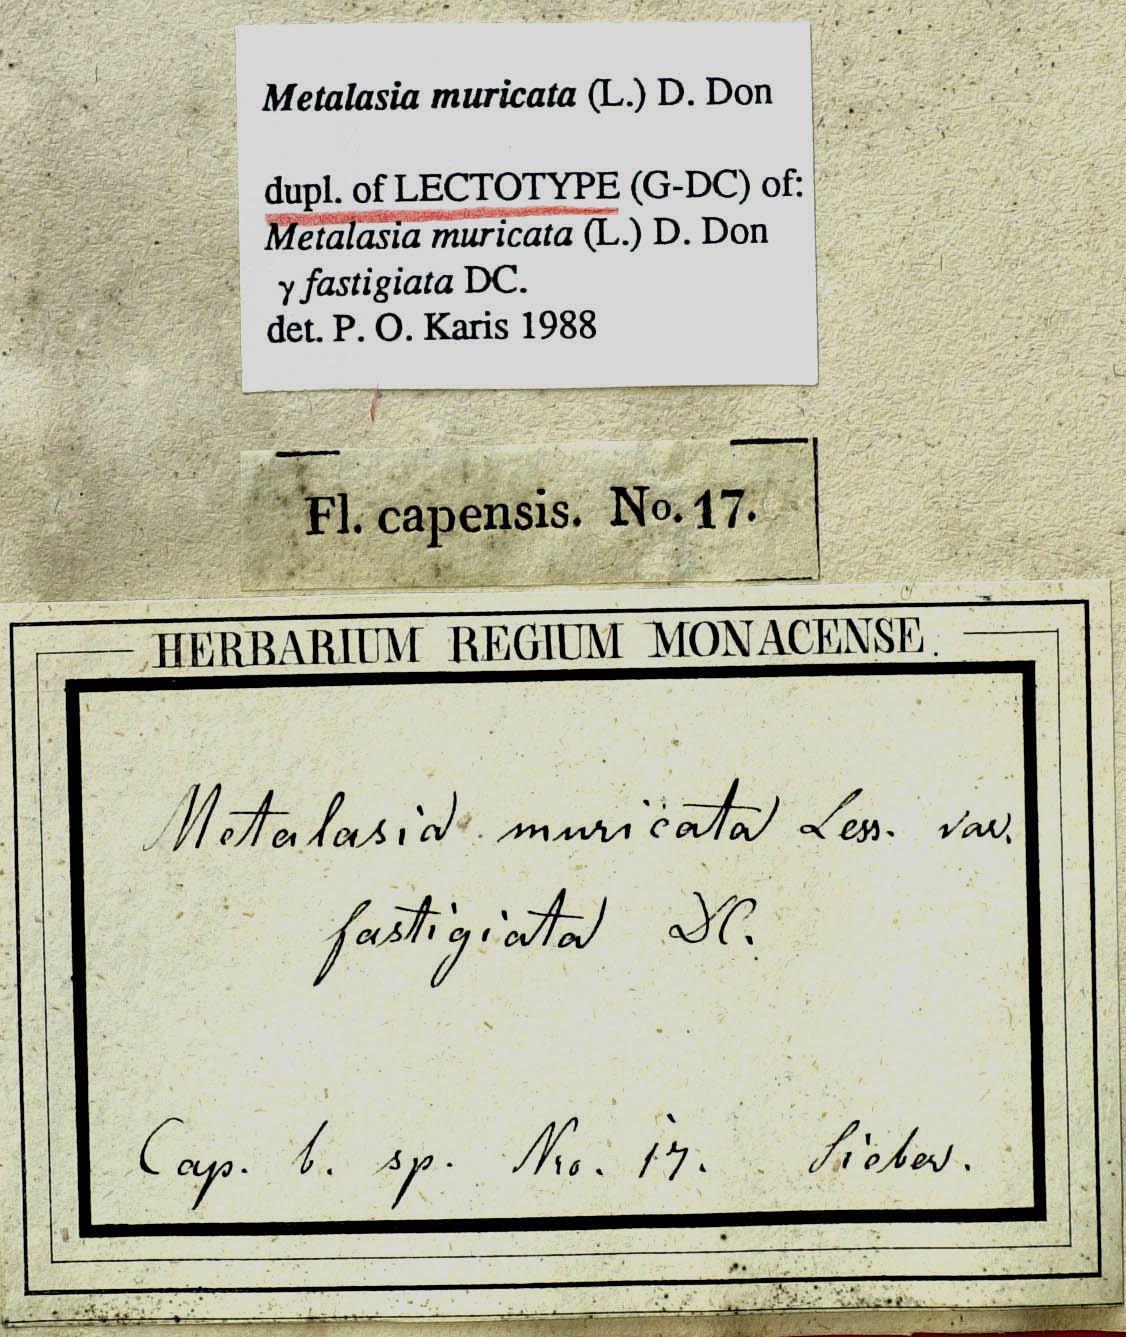 Metalasia muricata (L.) D. Don
dupl. of LECTOTYPE (G-DC) of:
Metalasia muricata (L.) D. Don
γ fastigiata DC.
det. P. O. Karis 1988
Fl. capensis. No. 17.
HERBARIUM REGIUM MONACENSE.
Metalasia muricata Less. var.
fastigiata DC.
Cap. b. sp. Nro. 17. Sieber.